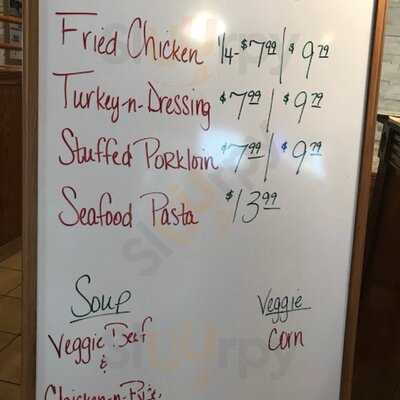 Fried Chicken 1/4-$7.99/$9.79
Turkey-n-Dressing $7.99/$9.79
Stuffed Porkloin $7.99/$9.79
Seafood Pasta $13.99
Soup
Veggie Beef
&
Chicken-n-Rice
Veggie
Corn
sluurpy
sluurpy